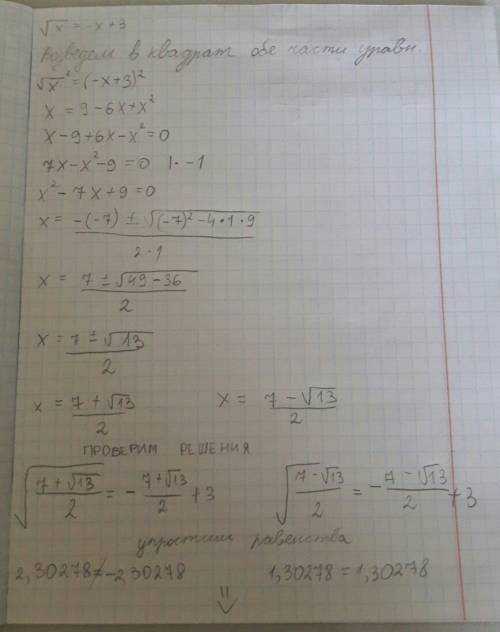 √x = -x+3
Возведем в квадрат обе части уравн.
√x² = (-x+3)²
x = 9-6x+x²
x-9+6x-x²=0
7x-x²-9=0 |· -1
x²-7x+9=0
x = (-(-7) ± √((-7)²-4·1·9)) / (2·1)
x = (7±√(49-36)) / 2
x = (7±√13) / 2
x = (7+√13) / 2 x = (7-√13) / 2
ПРОВЕРИМ РЕШЕНИЯ
√((7+√13)/2) = -(7+√13)/2 +3 √((7-√13)/2) = -(7-√13)/2 +3
упростим равенства
2,30278≠-2,30278 1,30278=1,30278
⇓